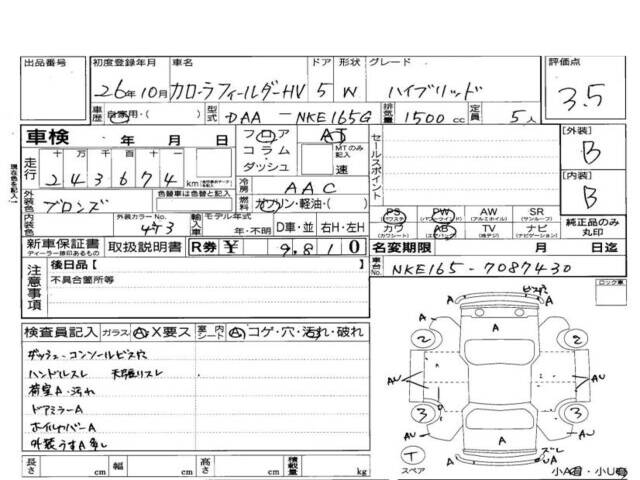 出品番号 初度登録年月 車名 ドア 形状 グレード 評価点
26年10月 カローラフィールダーHV 5 W ハイブリッド 3.5
車歴 自家用・( ) 型式 DAA-NKE165G 排気量 1500cc 定員 5人
車検 年 月 日 フロア AT セールスポイント [外装]
コラム MTのみ記入 B
ダッシュ 速
走行 十万千百十一
243674 km
冷房 AAC [内装]
外装色 ブロンズ 色替車は色替と記入 燃料 ガソリン・軽油・( ) B
内装色 外装カラーNo. 4V3 輸入車 モデル年式 年・不明 D車・並 右H・左H
PS PW AW SR
(パワステ) (パワーウインド) (アルミホイル) (サンルーフ)
カワ AB TV ナビ 純正品のみ丸印
(カワシート) (エアバッグ) (地デジ) (ナビゲーション)
新車保証書 取扱説明書 R券 ¥ 9,810 名変期限 月 日迄
ディーラー捺印あるもの
車台No. NKE165-7087430
注意事項 後日品[ ]
不具合箇所等
ロック車
検査員記入 ガラス A・X要ス 室内シート A・コゲ・穴・汚れ・破れ
ダッシュ・コンソールビス穴
ハンドルスレ 天張リスレ
荷室A・汚れ
ドアミラーA
ホイルカバーA
外装うすA多し
長さ cm 幅 cm 高さ cm 積載量 kg
A ビス穴
A A
2 2
AU AU
A
3 3
AU A AU
T スペア A ズレ
小A有・小U有